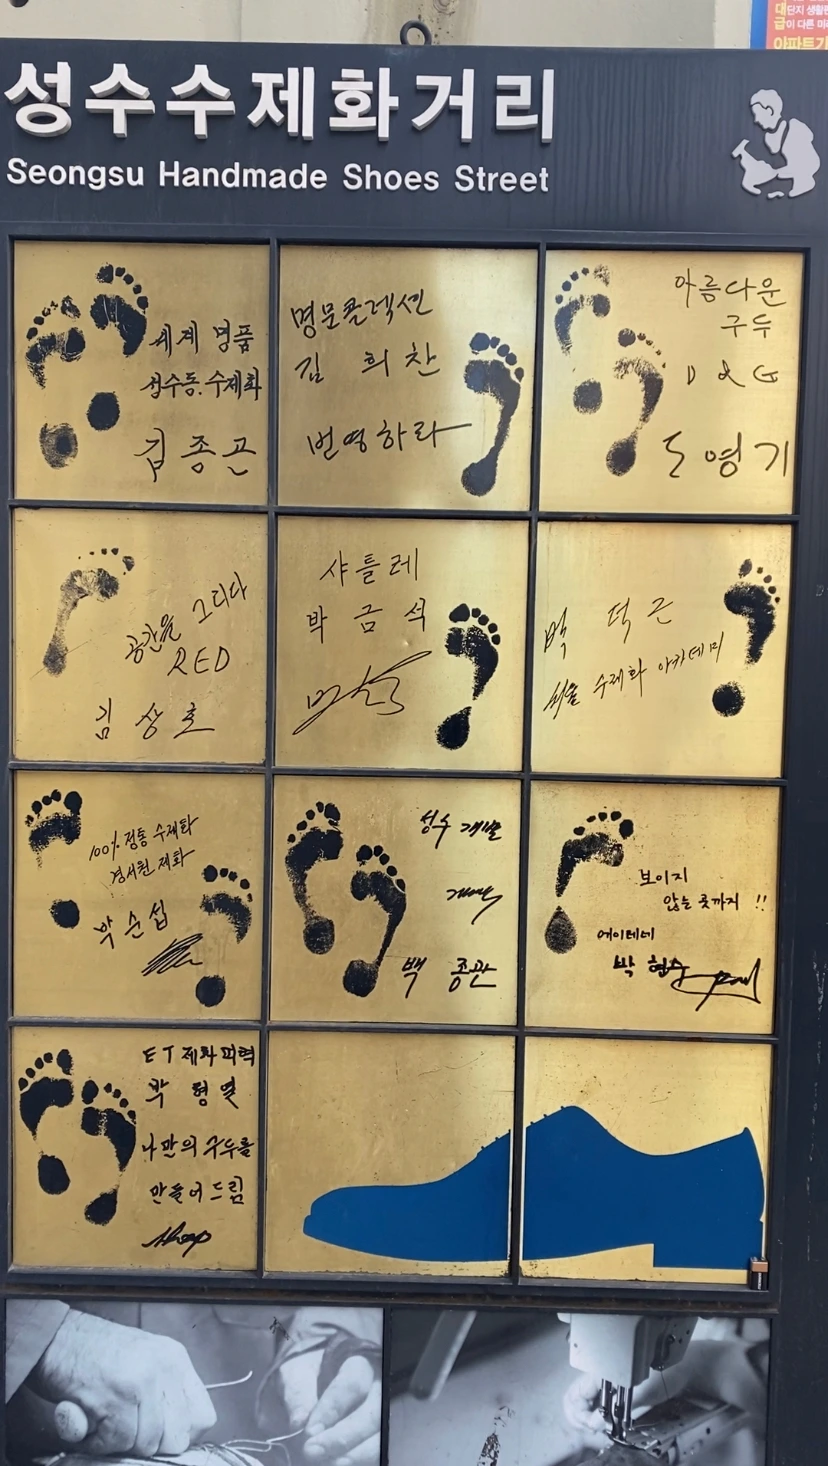 대단지 생활편
급이 다른 미래
성수수제화거리
Seongsu Handmade Shoes Street
세계 명품
성수동. 수제화
김종곤
명문콜렉션
김 희 찬
번영하라
아름다운
구두
D & G
도영기
공간을 그리다
RED
김 상 호
샤틀레
박 금 석
박 덕 근
서울 수제화 아카데미
100% 정통 수제화
경서원 제화
박순섭
성수
백 종관
보이지
않는 곳까지 !!
에이테네
박 형수
ET 제화피혁
박 형 열
나만의 구두를
만들어 드림